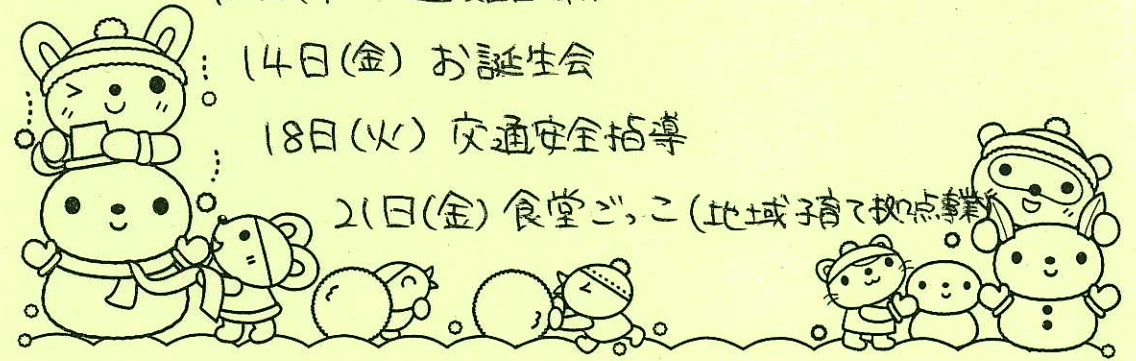 14日(金) お誕生会
18日(火) 交通安全指導
21日(金) 食堂ごっこ(地域子育て拠点事業)